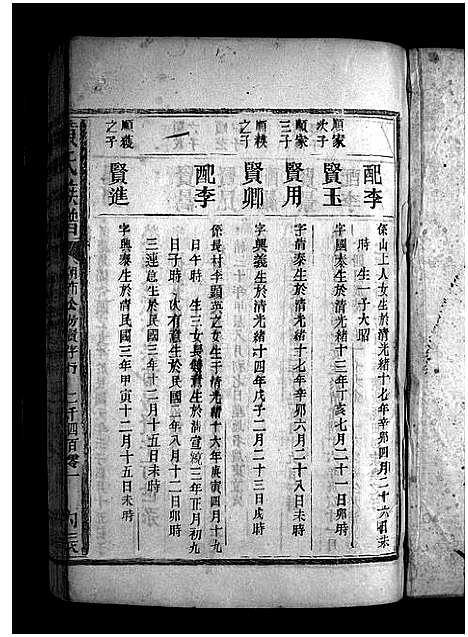 配李
係山上人女生於清光緒十七年辛卯四月二十六日未
時 生一子大昭
順家
次子
賢玉
字國泰生於清光緒十三年丁亥七月二十一日卯時
順家
三子
賢用
字清泰生於清光緒十七年辛卯六月二十八日未時
順秩
之子
賢卿
字興義生於清光緒十四年戊子二月二十三日戌時
配李
係長村李顯英之女生于清光緒十六年庚寅四月十九
日午時 生三女長鍾意生於清宣統二年正月初九
日子時 次有意生於民國二年八月十二日卯時
三連息生於民國三年十二月十五日未時
順秩
之子
賢進
字興泰生於清民國三年甲寅十二月十五日未時
氏族譜
二千四百零一